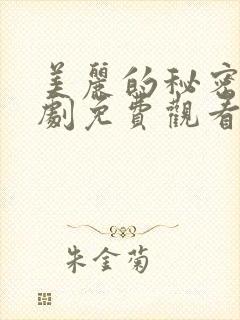 美麗的秘密
劇免費觀看
朱金菊